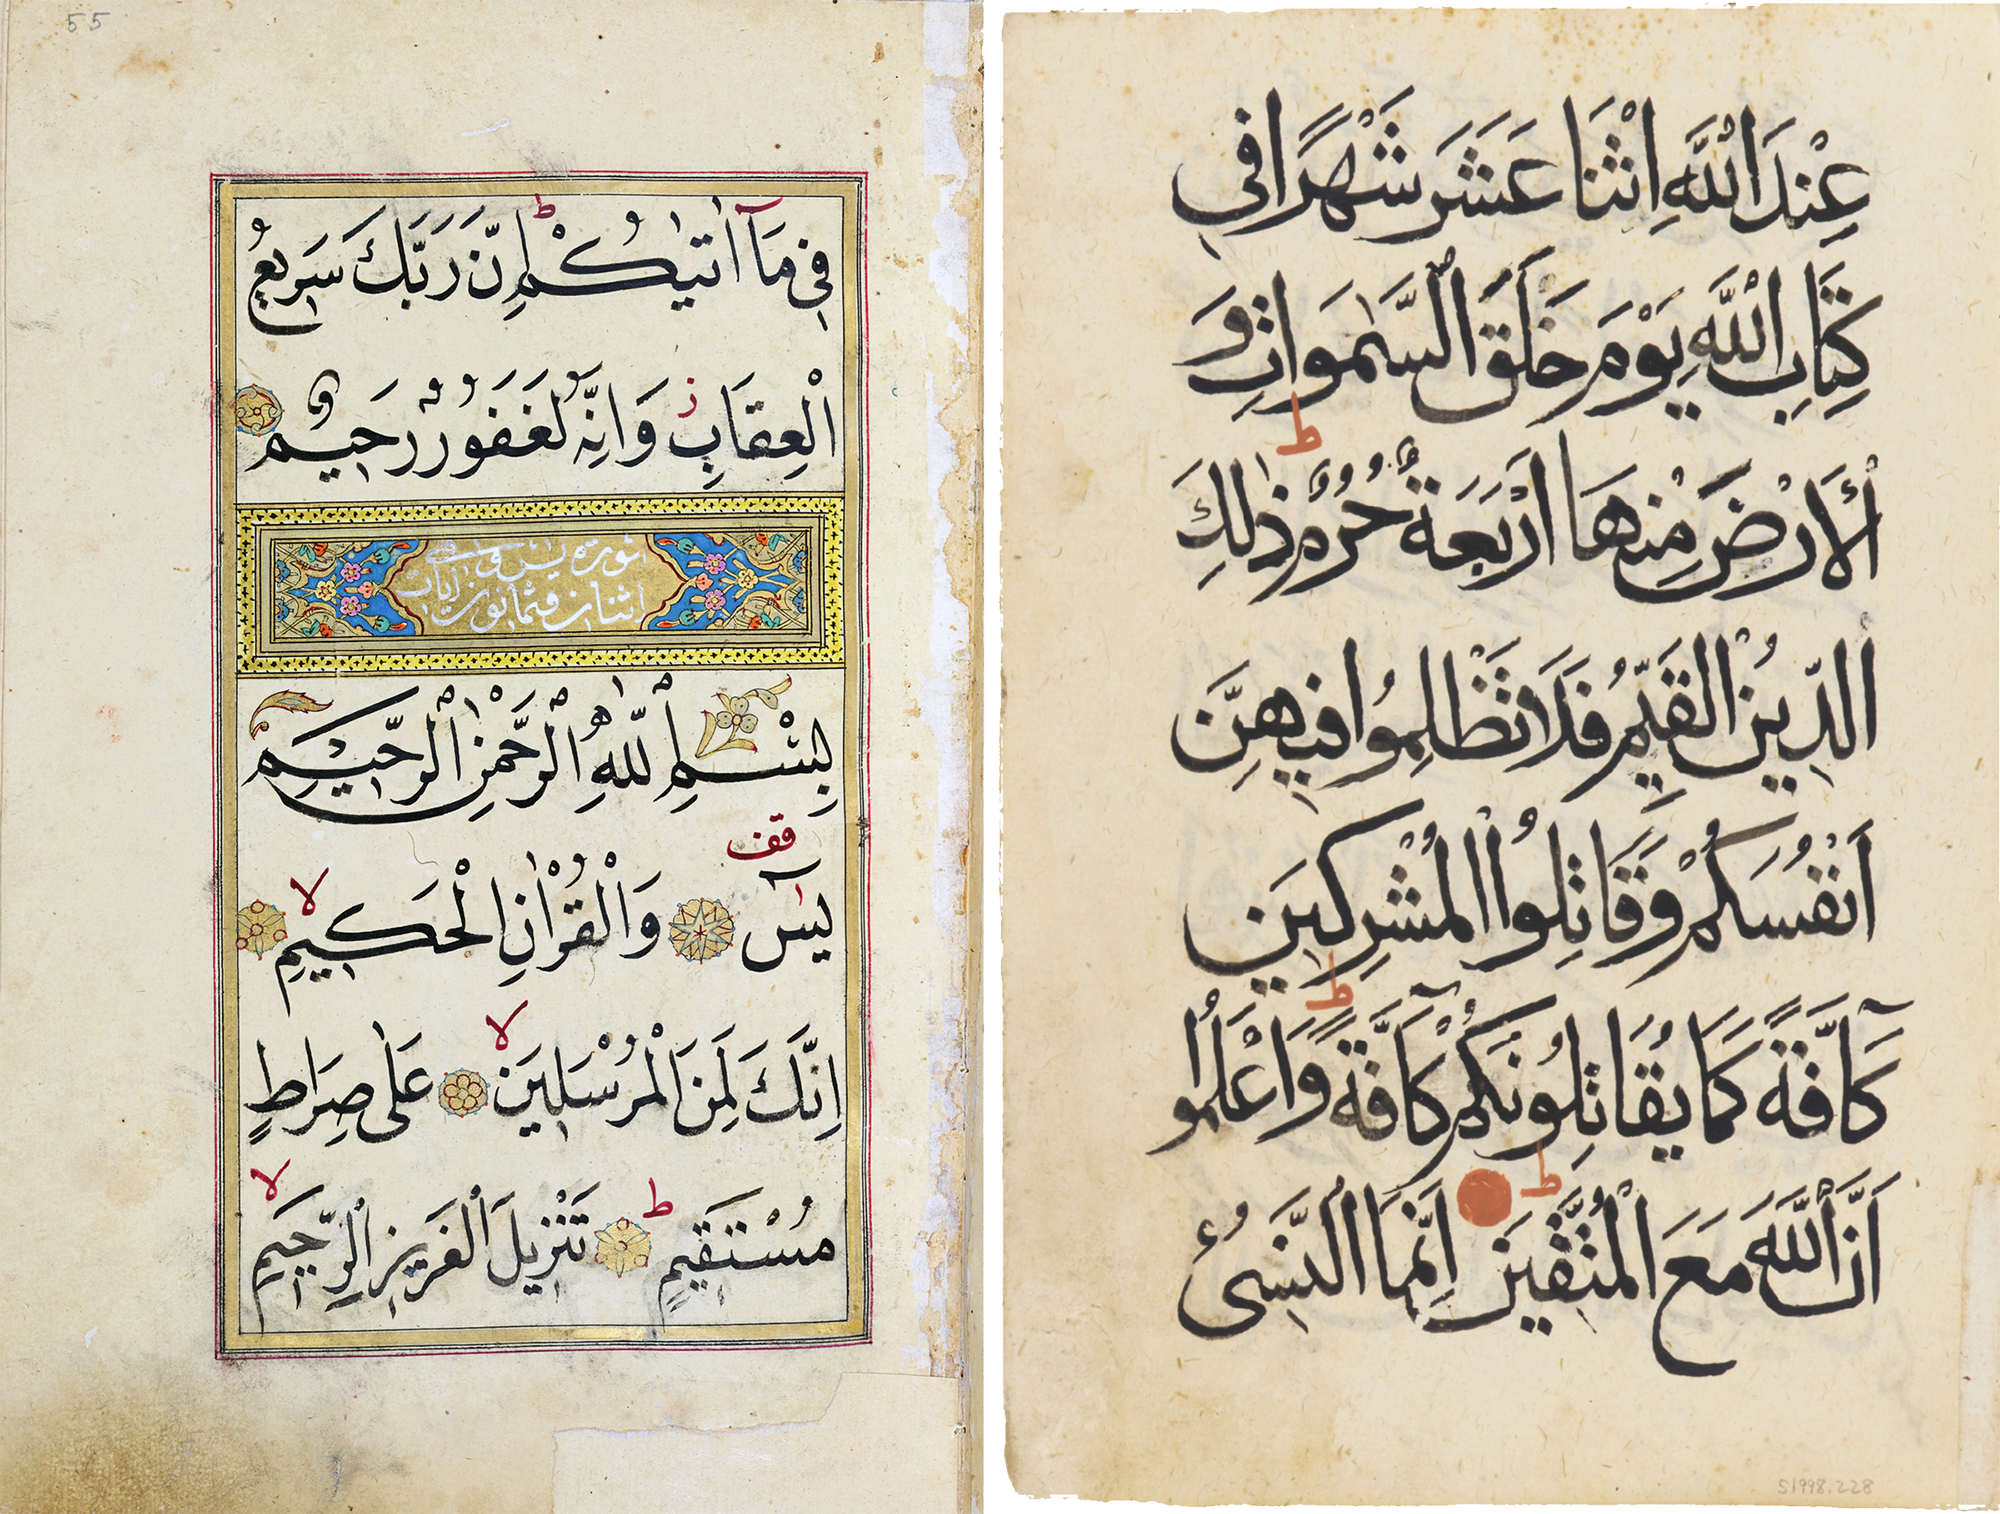 55
فِي مَآ اٰتٰيكُمْ ط اِنَّ رَبَّكَ سَرِيعُ
الْعِقَابِ ز وَاِنَّهُ لَغَفُورٌ رَحِيمٌ
سورة يس وهي
اثنان وثمانون آيات
بِسْمِ اللّٰهِ الرَّحْمٰنِ الرَّحِيمِ
يٰسٓ قف وَالْقُرْاٰنِ الْحَكِيمِ لا
اِنَّكَ لَمِنَ الْمُرْسَلِينَ لا عَلٰى صِرَاطٍ
مُسْتَقِيمٍ ط تَنْزِيلَ الْعَزِيزِ الرَّحِيمِ لا
عِنْدَ اللّٰهِ اثْنَا عَشَرَ شَهْرًا فِي
كِتَابِ اللّٰهِ يَوْمَ خَلَقَ السَّمٰوَاتِ وَ
الْاَرْضَ مِنْهَا اَرْبَعَةٌ حُرُمٌ ط ذٰلِكَ
الدِّينُ الْقَيِّمُ فَلَا تَظْلِمُوا فِيهِنَّ
اَنْفُسَكُمْ وَقَاتِلُوا الْمُشْرِكِينَ
كَآفَّةً كَمَا يُقَاتِلُونَكُمْ كَآفَّةً ط وَاعْلَمُوا
اَنَّ اللّٰهَ مَعَ الْمُتَّقِينَ ط اِنَّمَا النَّسِيءُ
S1998.228